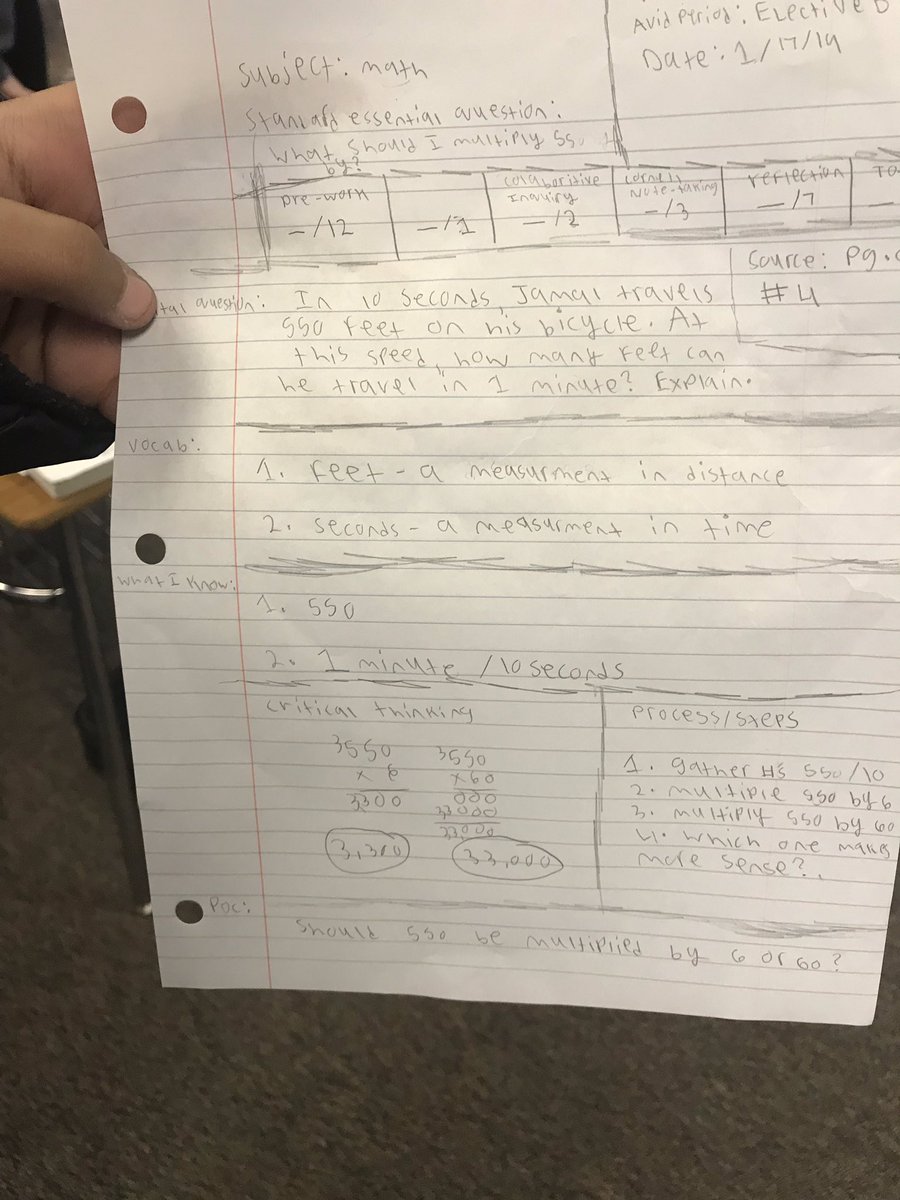 Avid Period: Elective B
Date: 1/17/19
Subject: math
Standard essential question:
What should I multiply 550
by?
pre-work
colaboritive
Inquiry
cornell
Note-taking
reflection
TO
-/12
-/1
-/2
-/3
-/7
-
Source: Pg.
#4
tal question: In 10 seconds, Jamal travels
550 feet on his bicycle. At
this speed, how many feet can
he travel in 1 minute? Explain.
Vocab:
1. feet - a measurment in distance
2. seconds - a measurment in time
What I Know:
1. 550
2. 1 minute /10 seconds
critical thinking
3550
x 6
3300
3,300
3550
x60
000
33000
33000
33,000
Process/Steps
1. gather #s 550/10
2. multiple 550 by 6
3. multiply 550 by 60
4. which one makes
more sense?
POC:
Should 550 be multiplied by 6 or 60?